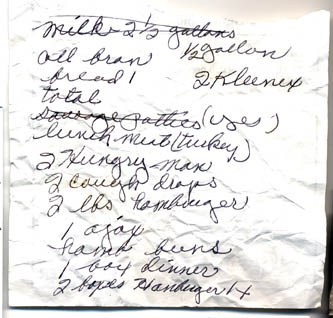 milk - 2 1/2 gallons
all bran 1/2 gallon
bread 1 2 Kleenex
total
sausage patties (yes)
lunch meat (turkey)
2 Hungry man
2 cough drops
2 lbs hamburger
1 ajax
hamb buns
1 box dinner
2 boxes Hamburger